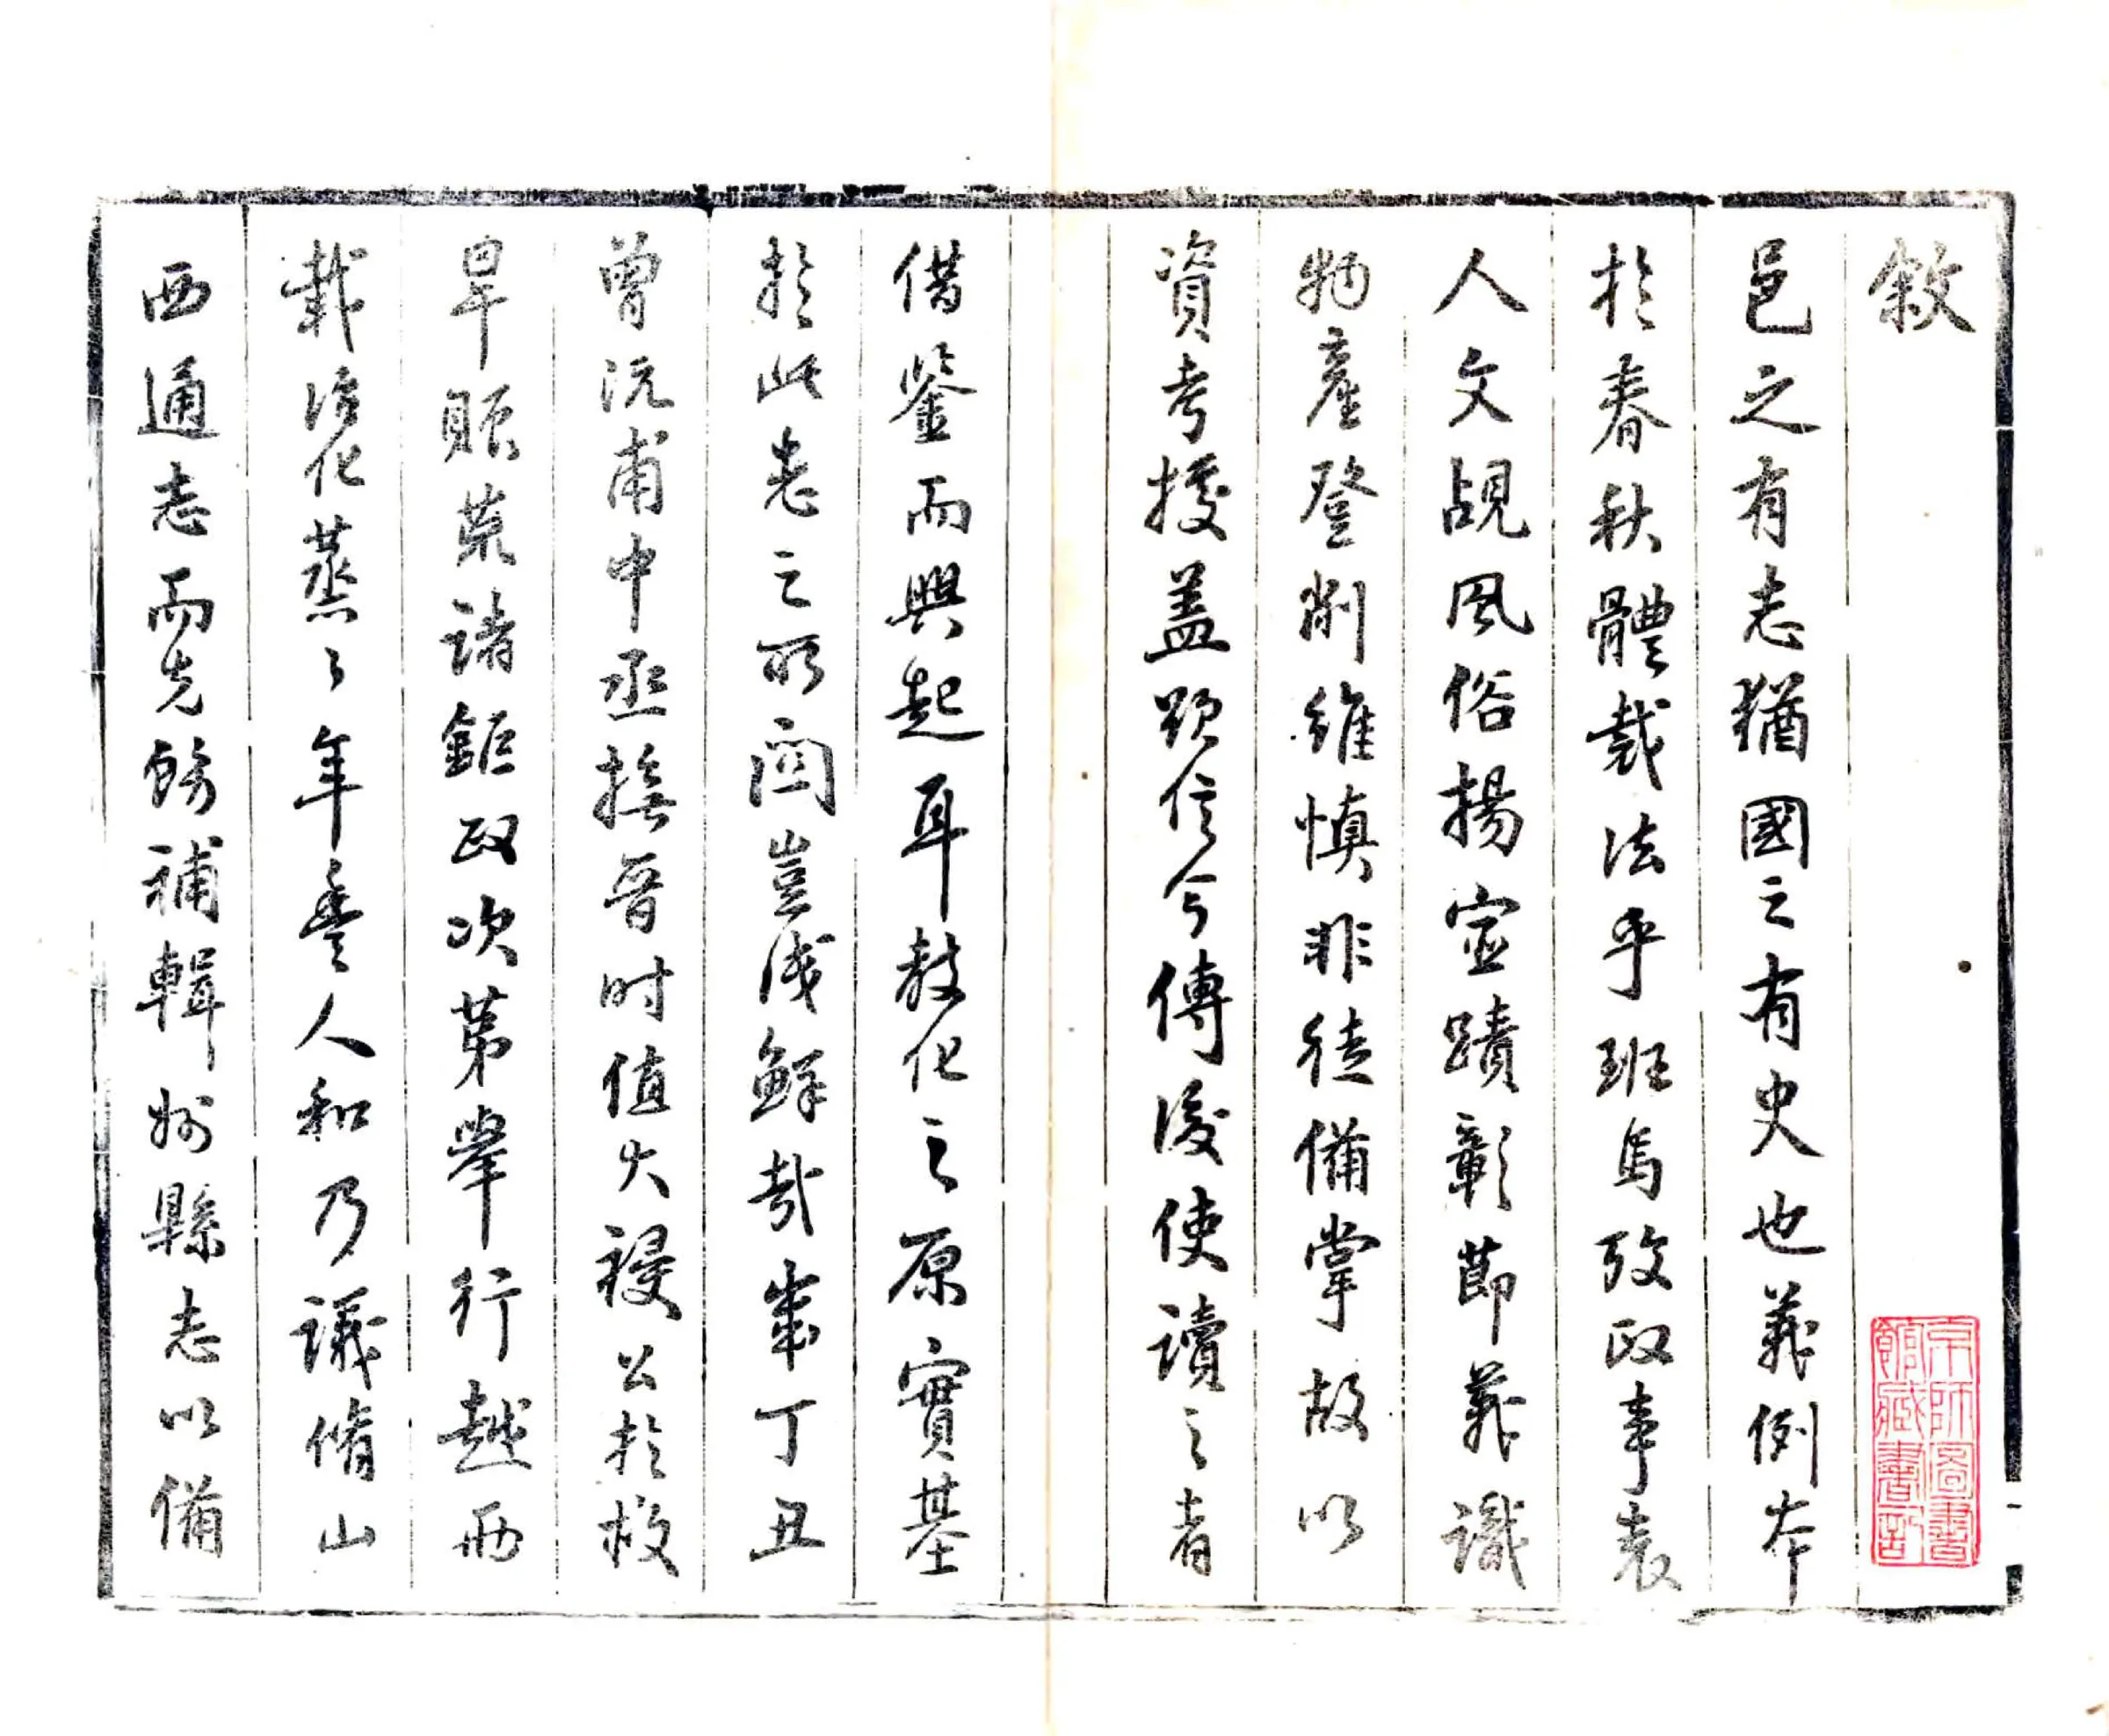 敘
邑之有志猶國之有史也義例本
於春秋體裁法乎班馬攷政事表
人文覘風俗揚宦蹟彰節義識
物產登削維慎非徒備掌故以
資考援蓋顯信今傳後使讀之者
借鑒而興起耳教化之原實基
於此志之所關豈淺鮮哉歲丁丑
曾沅甫中丞撫晉时值大祲公於救
旱賑荒諸鉅政次第舉行越兩
載治化蒸々年豐人和乃議脩山
西通志而先飭補輯州縣志以備
京師圖書
館藏書記